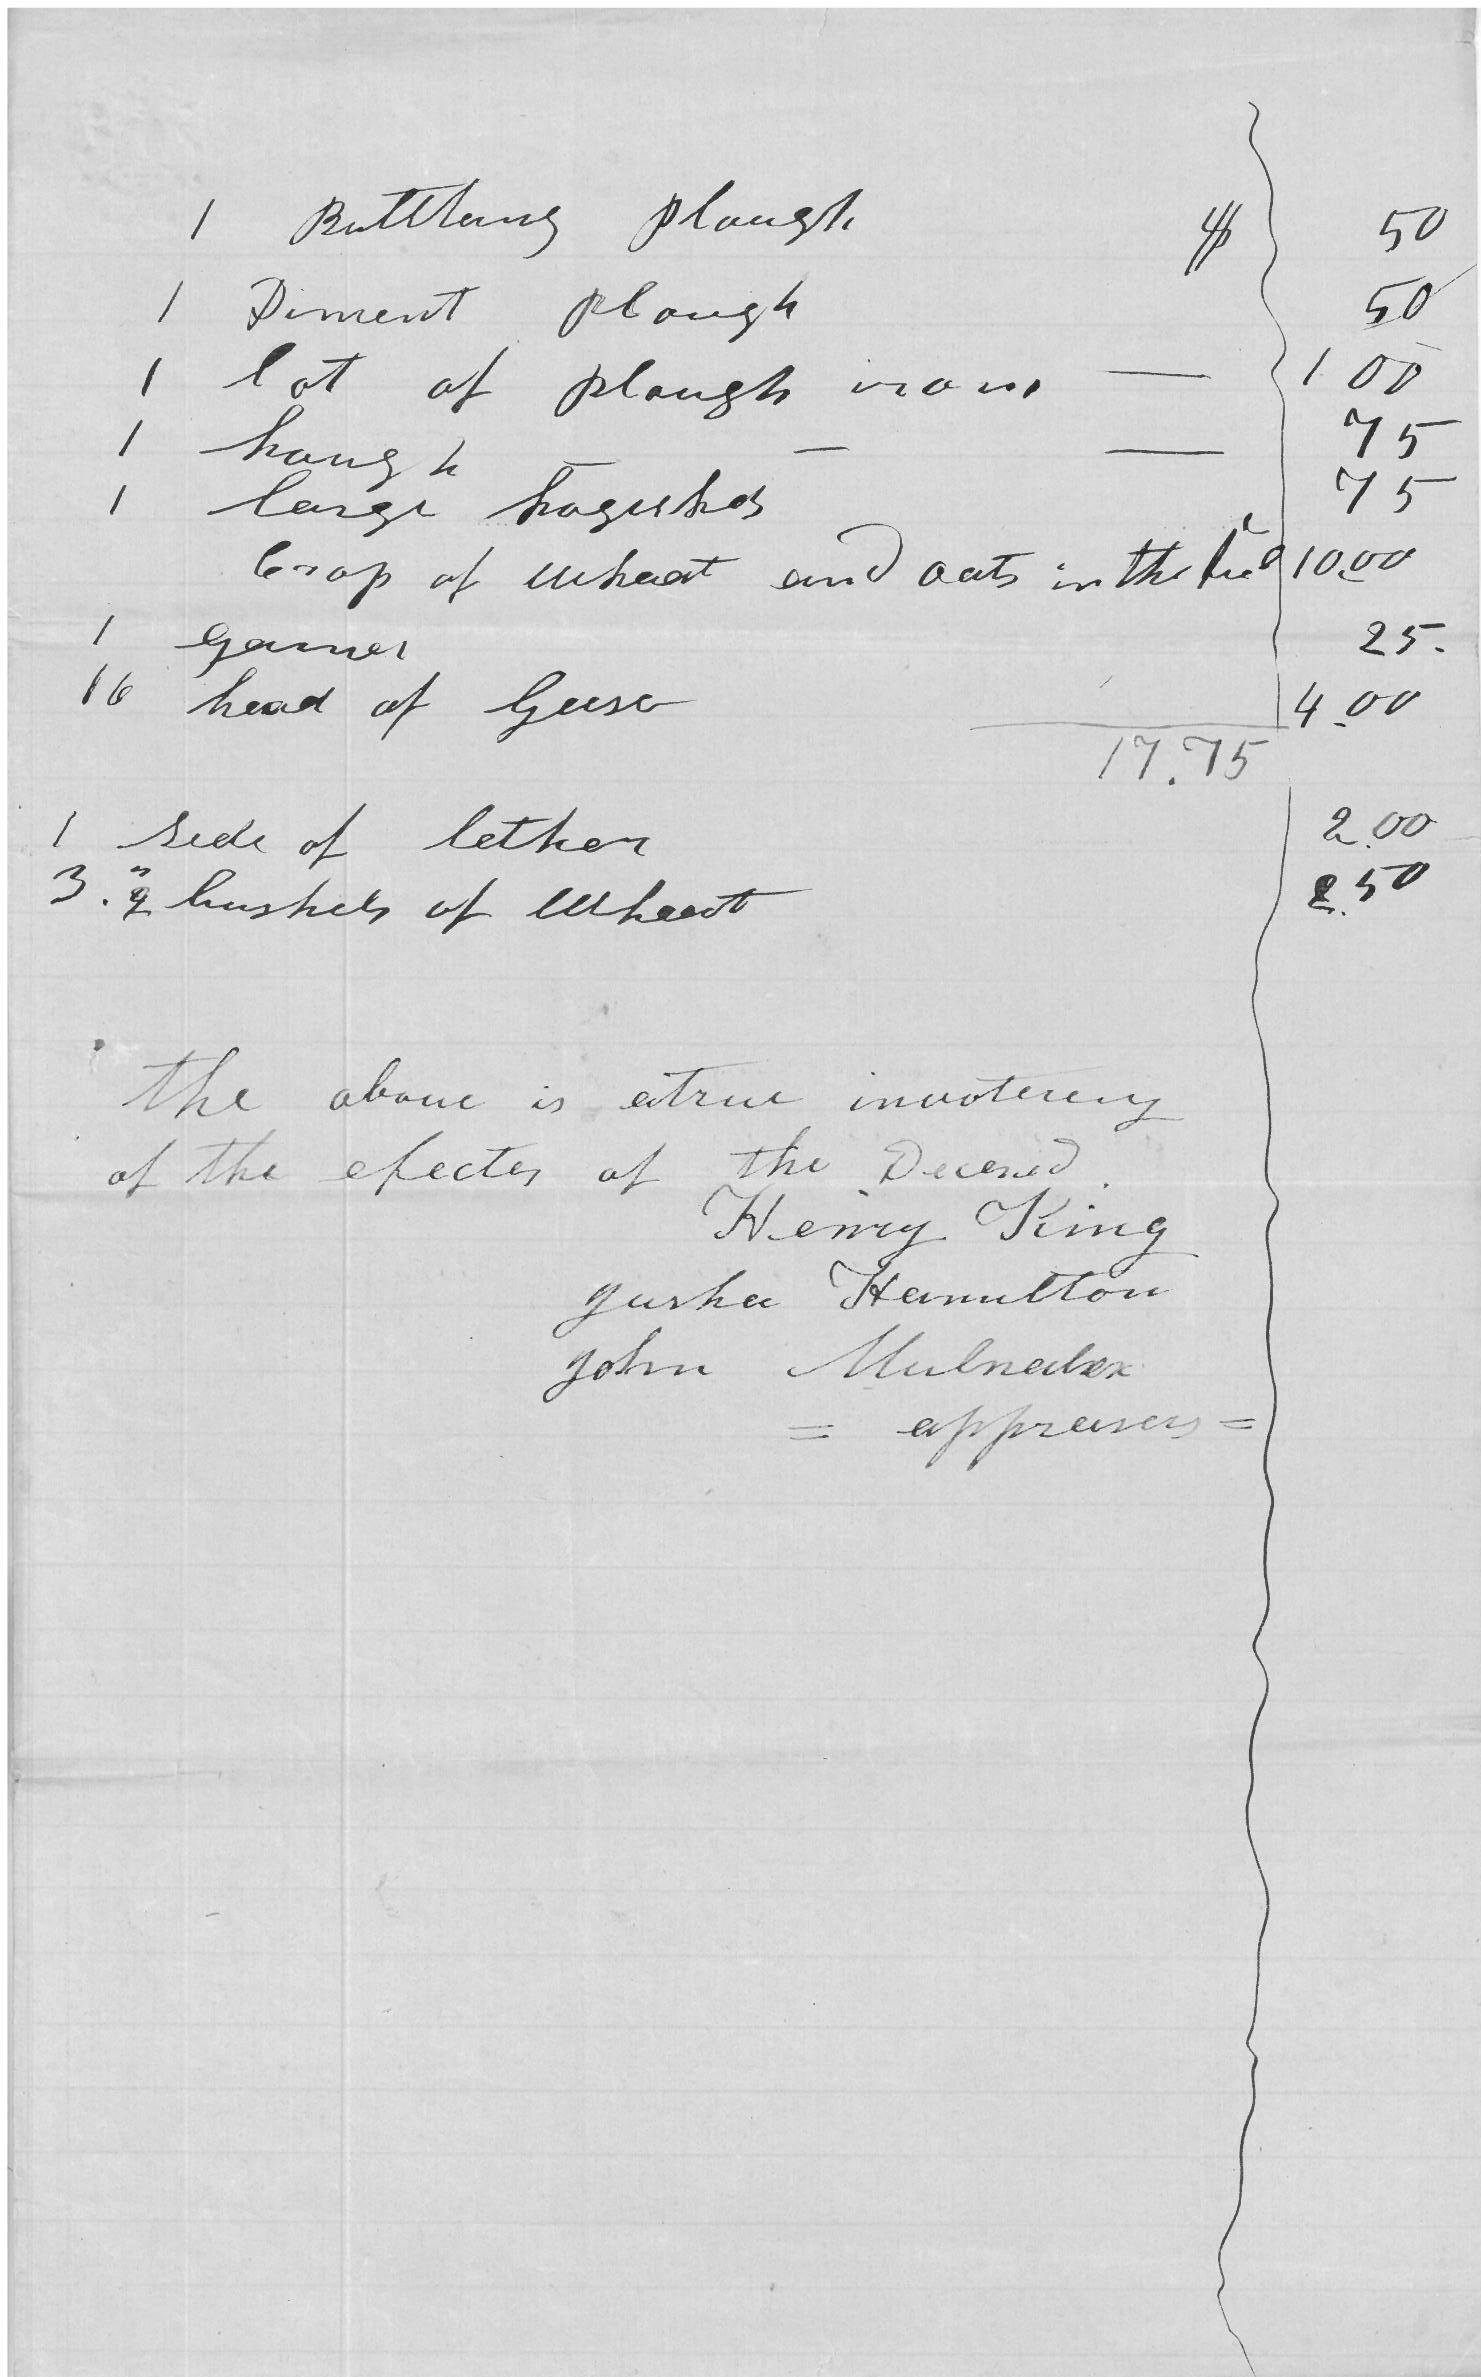 1 Buttlang plough $ 50
1 Diment plough 50
1 lot of plough irons — 1 00
1 hough — — 75
1 large hogeshed 75
Crop of Wheat and oats in the 10.00
1 garner 25.
16 head of Geese 4.00
17.75
1 side of lether 2.00
3. bushels of Wheat 2.50
the above is atrue invoterery
of the efectes of the Decesed
Henry King
Jusha Hamilton
John
= appraisers =